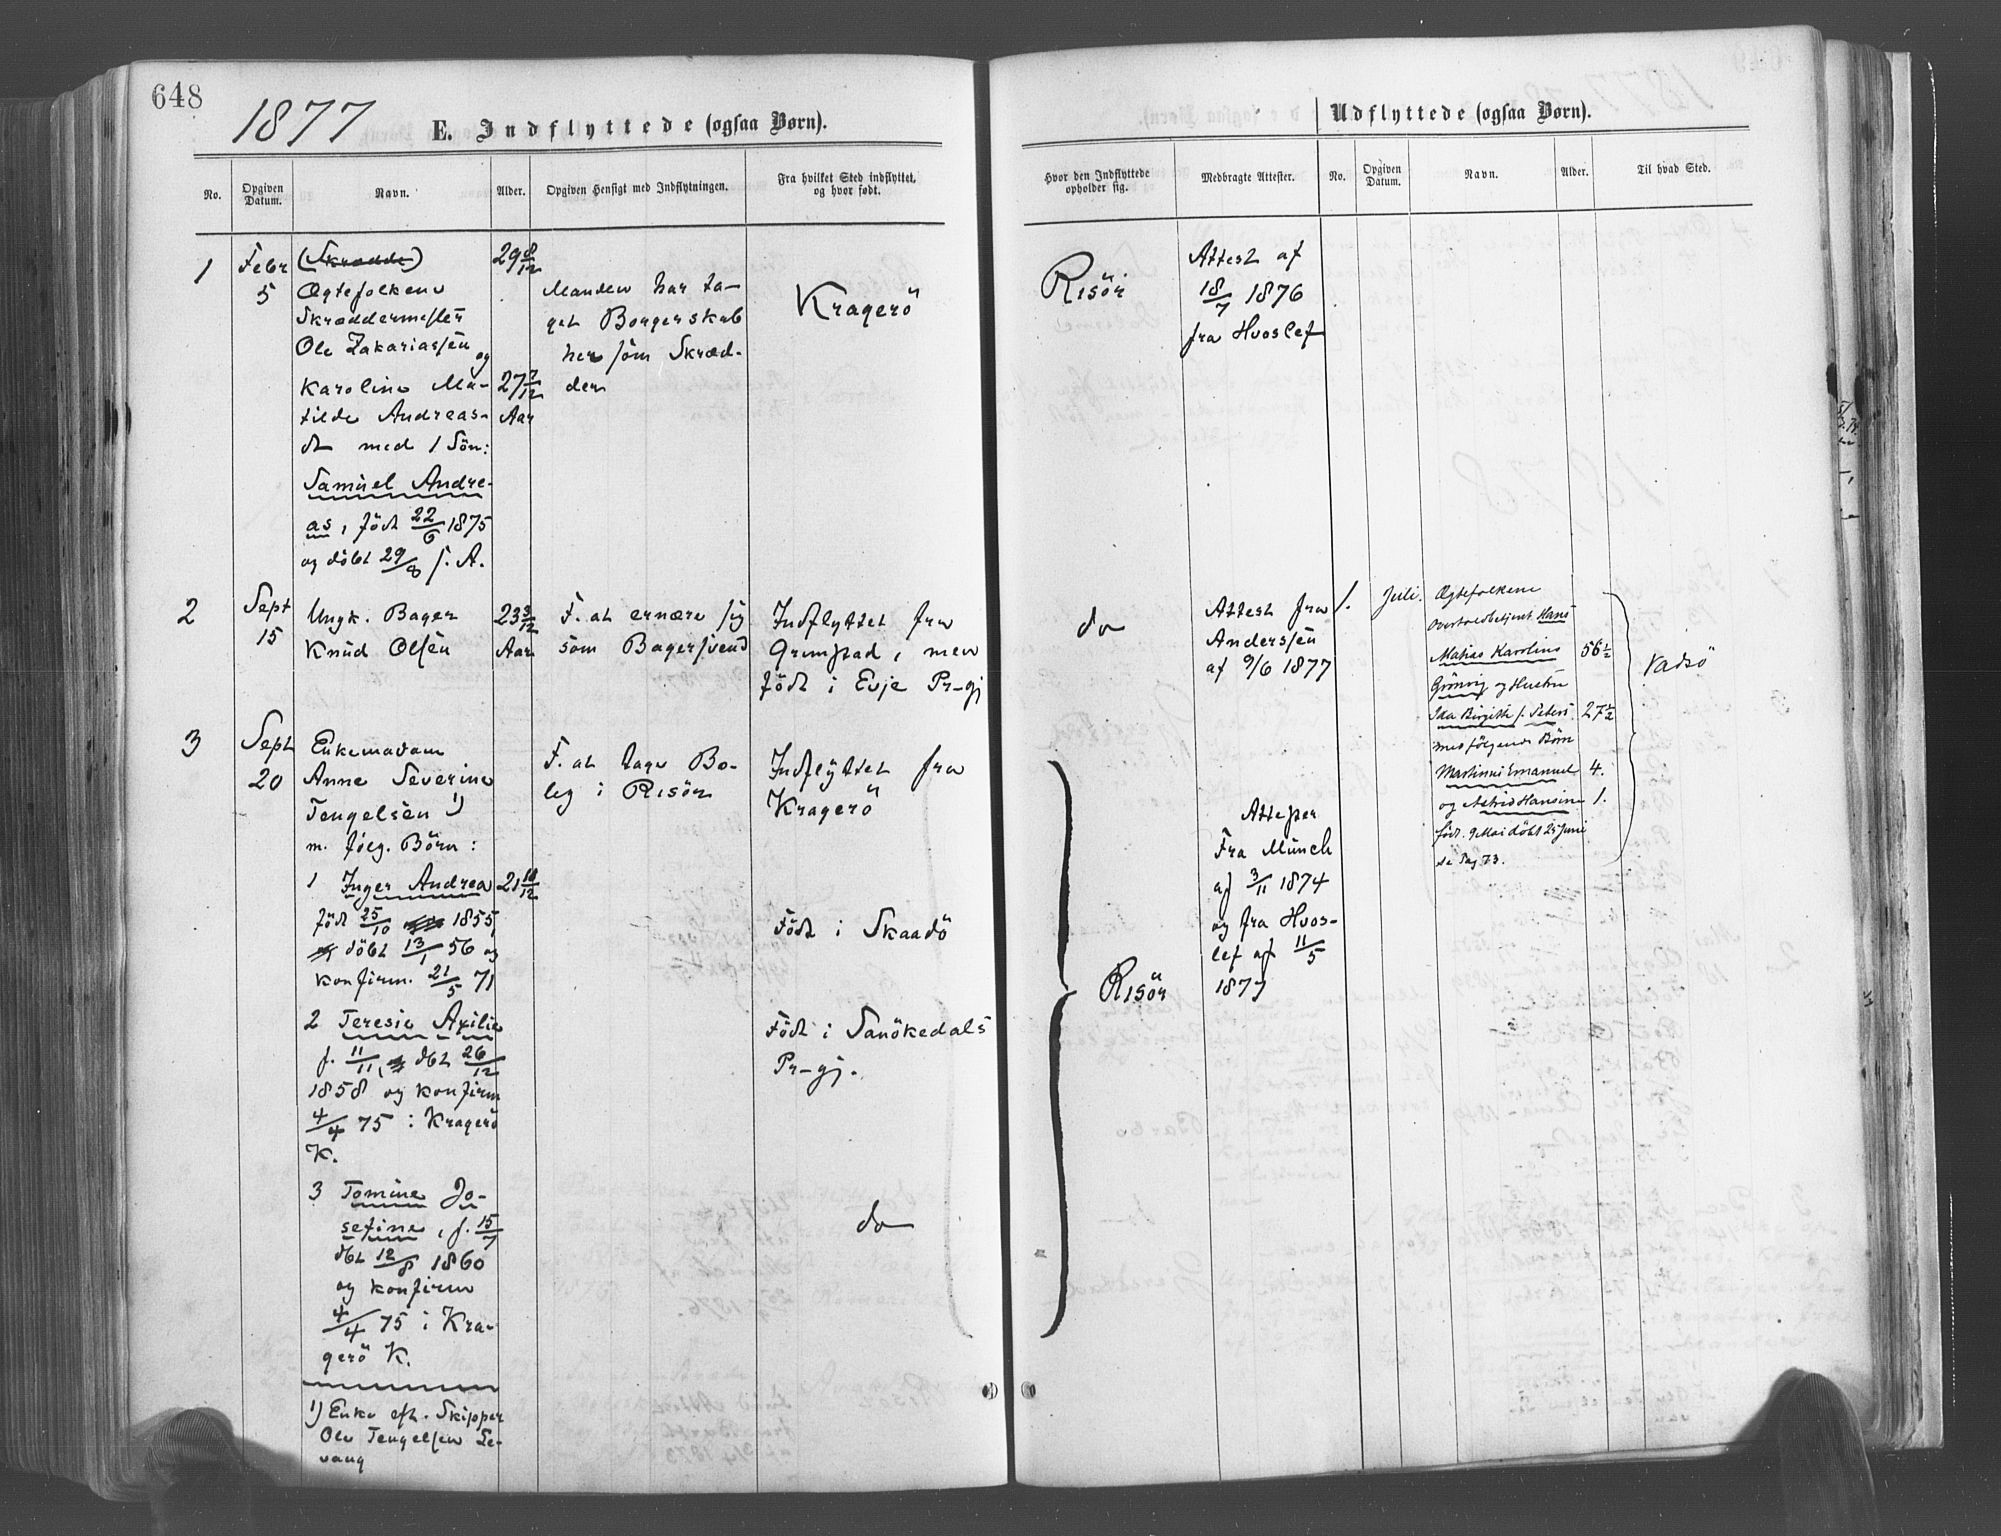 648
1877
E. Indflyttede (ogsaa Børn).
No.
Opgiven Datum.
Navn.
Alder.
Opgiven Hensigt med Indflytningen.
Fra hvilket Sted indflyttet, og hvor født.
1
Febr
5
(Skrædde)
Ægtefolkene
Skræddermester
Ole Zakariassen
og
Karoline Ma-
tilde Andreas-
dt med 1 Sön:
Samuel Andre-
as, födt 22/6 1875
og döbt 29/8 s. A.
29 8/12
27 7/12
Aar
Manden har ta-
get Borgerskab
her som Skræd-
der
Kragerö
2
Sept
15
Ungk. Bager
Knud Olsen
23 3/12
Aar
F. at ernære sig
som Bagersvend
Indflyttet fra
Grimstad, men
födt i Evje Pr-gj
3
Sept
20
Enkemadam
Anne Severine
Tengelsen 1)
m. fölg. Börn:
1 Inger Andrea
födt 25/10 1855,
döbt 13/1 56 og
konfirm. 21/5 71
21 10/12
F. at tage Bo-
lig i Risör
Indflyttet fra
Kragerö
Födt i Skaadö
2 Teresie Axilie
f. 11/11, dbt 26/12
1858 og konfirm
4/4 75 i Kragerö
K.
Födt i Sanökedals
Pr-gj.
3 Tomine Jo-
sefine, f. 15/7
dbt 12/8 1860
og konfirm
4/4 75 i Kra-
gerö K.
do
1) Enke eft. Skipper
Ole Tengelsen Le-
vang
Udflyttede (ogsaa Børn).
Hvor den Indflyttede opholder sig.
Medbragte Attester.
No.
Opgiven Datum.
Navn.
Alder.
Til hvad Sted.
Risör
Attest af
18/7 1876
fra Hvoslef
do
Attest fra
Anderssen
af 9/6 1877
Risör
Attester
Fra Münch
af 3/11 1874
og fra Hvos-
lef af 11/5
1877
1.
Juli.
Ægtefolkene
Overtoldbetjent Hans
Matias Karolius
Grönvig og Hustru
Ida Birgitte f. Peters.
med fölgende Börn
Martinus Emanuel
og Astrid Hansine
föd. 9 Mai döbt 25 Juni
se Pag 73.
56 1/2
27 1/2
4.
1.
Vadsö